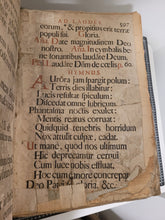 AD LAUDES
507
eorum, & propitius eris terræ
populi sui. Gloria.
Ana. Date magnitudinem Deo
nostro. Ana. In cymbalis be
ne sonantibus laudate Deum.
Ps. Laudate Dñm de cœlis 60.
HYMNUS
Aurôra jam spargit polum:
Terris dies illabitur:
Lucis resultat spiculum:
Discedat omne lubricum.
Phantasma noctis exulet:
Mentis reatus corruat:
Quidquid tenebris horridum
Nox attulit culpæ, cadat.
Ut mane, quod nos ultimum
Hic deprecamur cernui,
Cum luce nobis effluat,
Hoc dum canore concrepat.
Deo Patri &c.